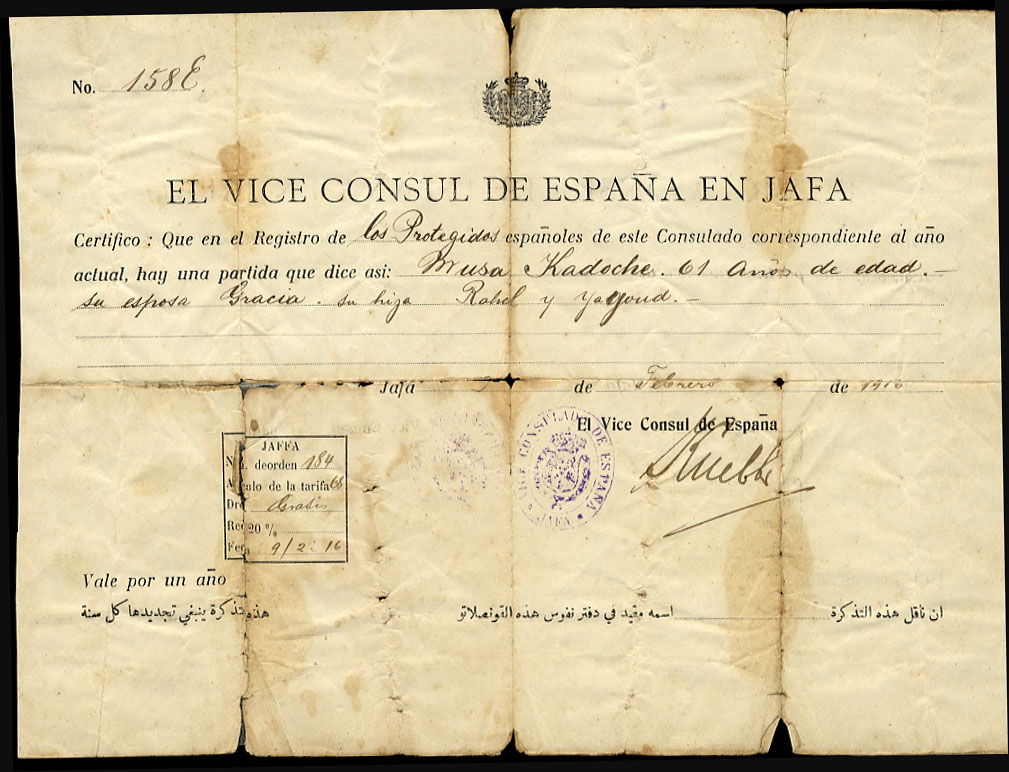 No. 158 E.
EL VICE CONSUL DE ESPAÑA EN JAFA
Certifico : Que en el Registro de los Protegidos españoles de este Consulado correspondiente al año
actual, hay una partida que dice asi: Musa Kadoche. 61 años de edad. —
su esposa Gracia. su hiza Rahel y Yayoud. —
Jafa de Febrero de 1916
El Vice Consul de España
VICE CONSULADO DE ESPAÑA
JAFA
JAFFA
N deorden 184
A culo de la tarifa 68
Dre Gratis
Rec 20 %
Fec a 9/2-16
Vale por un año
ان ناقل هذه التذكرة اسمه مقيد في دفتر نفوس هذه القونصلاتو هذه تذكرة ينبغي تجديدها كل سنة